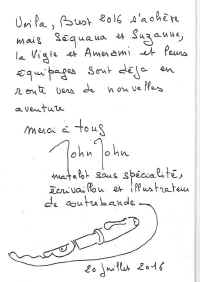 Voilà, Brest 2016 s'achève
mais Séquana et Suzanne,
la Vigie et Amerami et leurs
équipages sont déjà en
route vers de nouvelles
aventure
merci à tous
John John
matelot sans spécialité,
écrivaillon et illustrateur
de contrebande
20 juillet 2016